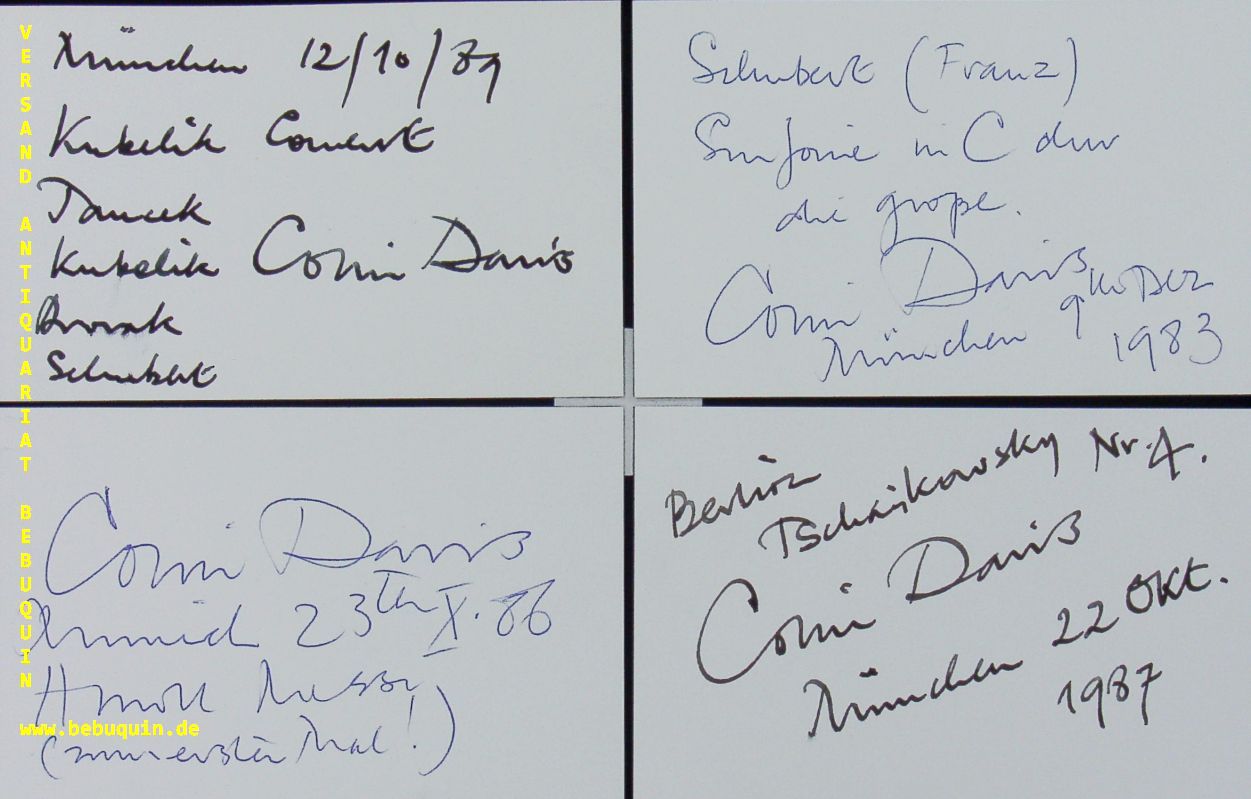 München 12/10/89
Kubelik Concert
Janacek
Kubelik Colin Davis
Dvorak
Schubert
Schubert (Franz)
Sinfonie in C dur
die große.
Colin Davis
München 9 1983
Colin Davis
Munich 23th X. 86
H moll Messe
(zum ersten Mal!)
Berlioz
Tschaikowsky Nr. 4.
Colin Davis
München 22 Okt.
1987
VERSAND ANTIQUARIAT BEBUQUIN
www.bebuquin.de